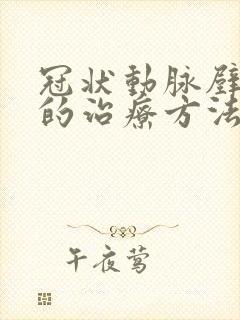 冠状動脉壁
的治療方法
午夜莺